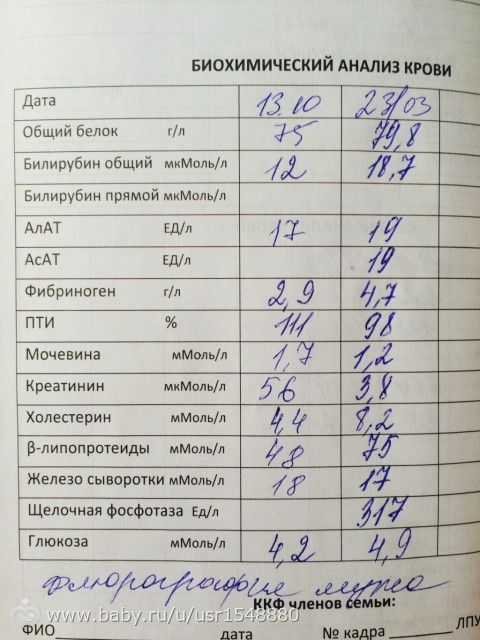 БИОХИМИЧЕСКИЙ АНАЛИЗ КРОВИ
Дата 13.10 23/03
Общий белок г/л 75 79,8
Билирубин общий мкМоль/л 12 18,7
Билирубин прямой мкМоль/л
АлАТ ЕД/л 17 19
АсАТ ЕД/л 19
Фибриноген г/л 2,9 4,7
ПТИ % 111 98
Мочевина мМоль/л 1,7 1,2
Креатинин мкМоль/л 56 3,8
Холестерин мМоль/л 4,4 8,2
β-липопротеиды мМоль/л 48 75
Железо сыворотки мМоль/л 18 17
Щелочная фосфотаза Ед/л 317
Глюкоза мМоль/л 4,2 4,9
флюрография мужа
ККФ членов семьи:
www.baby.ru/u/usr1548880
ФИО дата № кадра ЛПУ